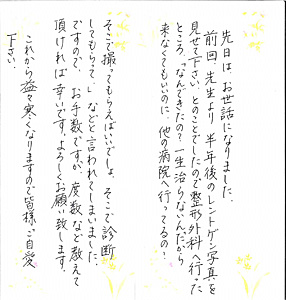 先日は、お世話になりました。
前回、先生より半年後のレントゲン写真を
見せて下さい、とのことでしたので整形外科へ行った
ところ、「なんできたの?一生治らないんだから
来なくてもいいのに。他の病院へ行ってるの?
そこで撮ってもらえばいいでしょ。そこで診断
してもらって。」などと言われてしまいました。
ですので、お手数ですが、度数など教えて
頂ければ幸いです。よろしくお願い致します。
これから益々寒くなりますので皆様ご自愛
下さい。